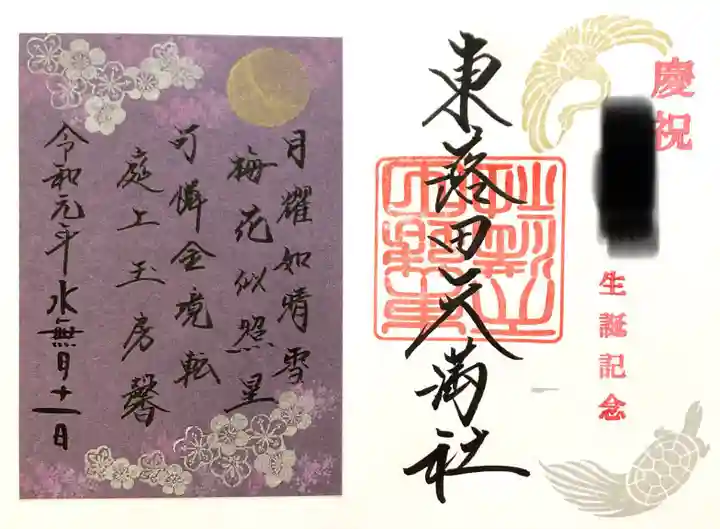 慶祝
生誕記念
東蕗田天満社
月耀如晴雪
梅花似照星
可憐金鏡転
庭上玉房馨
令和元年水無月十一日